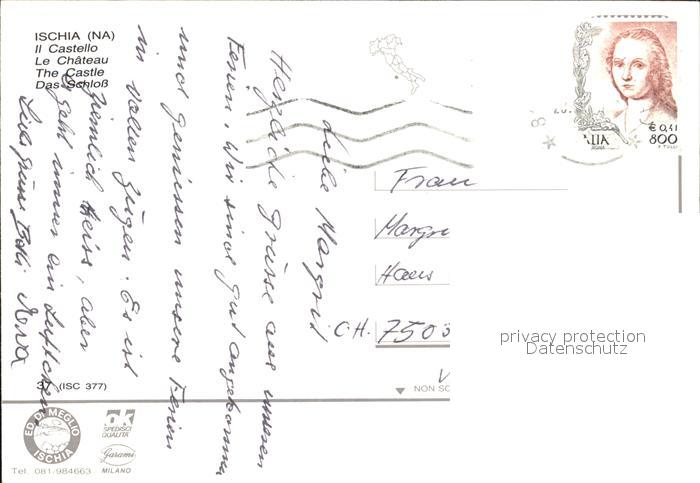 ISCHIA (NA)
Il Castello
Le Château
The Castle
Das Schloß
Liebe Margrit
Herzliche Grüsse aus unseren
Ferien. Wir sind gut angekommen
und geniessen unsere Ferien
in vollen Zügen. Es ist
ziemlich heiss, aber
es geht immer ein Lüftchen
Liebe Grüsse
Frau
Margr
Haus
CH. 7503
privacy protection
Datenschutz
€ 0,41
800
NON SC
37 (ISC 377)
ED. DI MEGLIO
ISCHIA
Tel. 081/984663
ok
SPEDISCI
QUALITÀ
Garami
MILANO